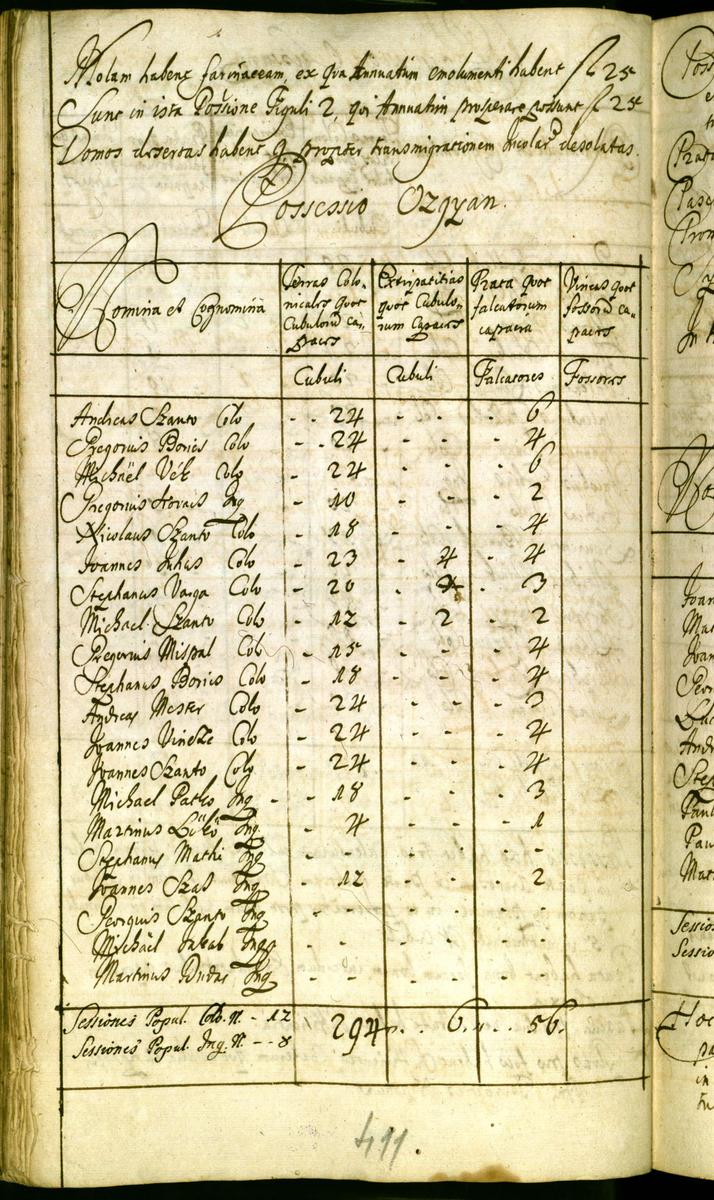 Molam habent farinaceam, ex qua Annuatim emolumenti habent fl 25
Sunt in ista Possione Figuli 2, qui Annuatim prosperare possunt fl 25
Domos desertas habent 9 propter transmigrationem Incolar. desolatas.
Possessio Ozgyan.
Nomina et Cognomina
Terras Colo-
nicales quot
Cubulorum ca-
paces
Extirpatitias
quot Cubulo-
rum capaces
Prata quot
falcatorum
capacia
Vineas quot
fossorum ca-
paces
Cubuli Cubuli Falcatores Fossores
Andreas Szanto Colo - - 24 - - - - 6
Gregorius Borics Colo - - 24 - - - - 4
Michaël Vék Colo - 24 - - - - 6
Gregorius Hovacs Inq - 10 - - - 2
Nicolaus Szanto Colo - 18 - - - 4
Joannes Juhas Colo - 23 - 4 - 4
Stephanus Varga Colo - 20 - - 3
Michael Szanto Colo - 12 - 2 - 2
Gregorius Mispal Colo - 15 - - - 4
Stephanus Borics Colo - 18 - - - 4
Andreas Mester Colo - 24 - - - 3
Joannes Vincze Colo - 24 - - - 4
Joannes Szanto Colo - 24 - - - 4
Michael Patko Inq - - 18 - - - 3
Martinus Lökö Inq - 4 - - - 1
Stephanus Mathi Inq - - - - - -
Joannes Szas Inq - 12 - - - 2
Georgius Szanto Inq - - - - - -
Michäel Jakab Inq - - - - - -
Martinus Dudas Inq - - - - - -
Sessiones Popul. Colo. N. - 12 294 - . . 6. . . 56.
Sessiones Popul. Inq. N. - - 8
411